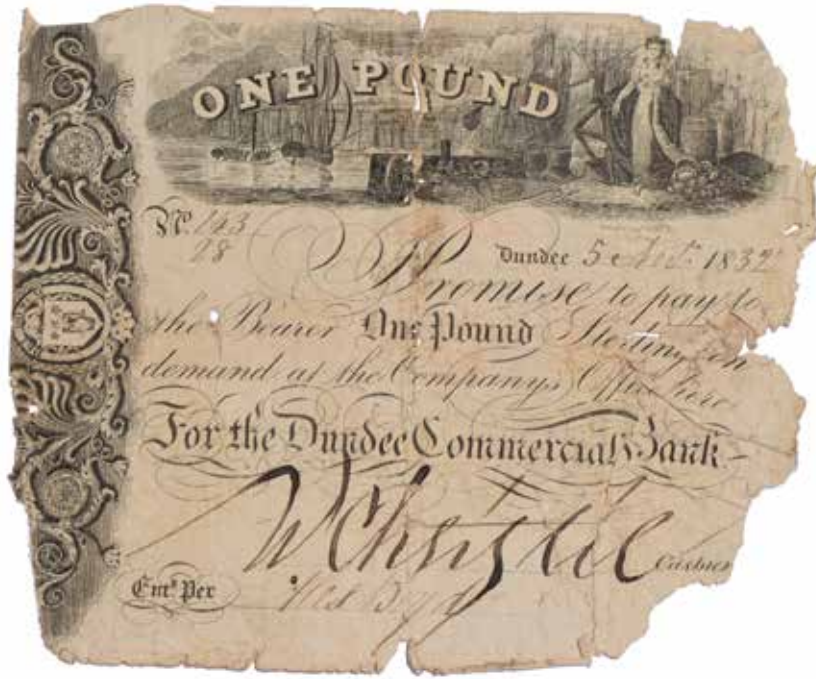 ONE POUND
No. 143
98
Dundee 5 1832
I Promise to pay to
the Bearer One Pound Sterling on
demand at the Companys Office here
For the Dundee Commercial Bank
W Christie Cashier
Entd. Per